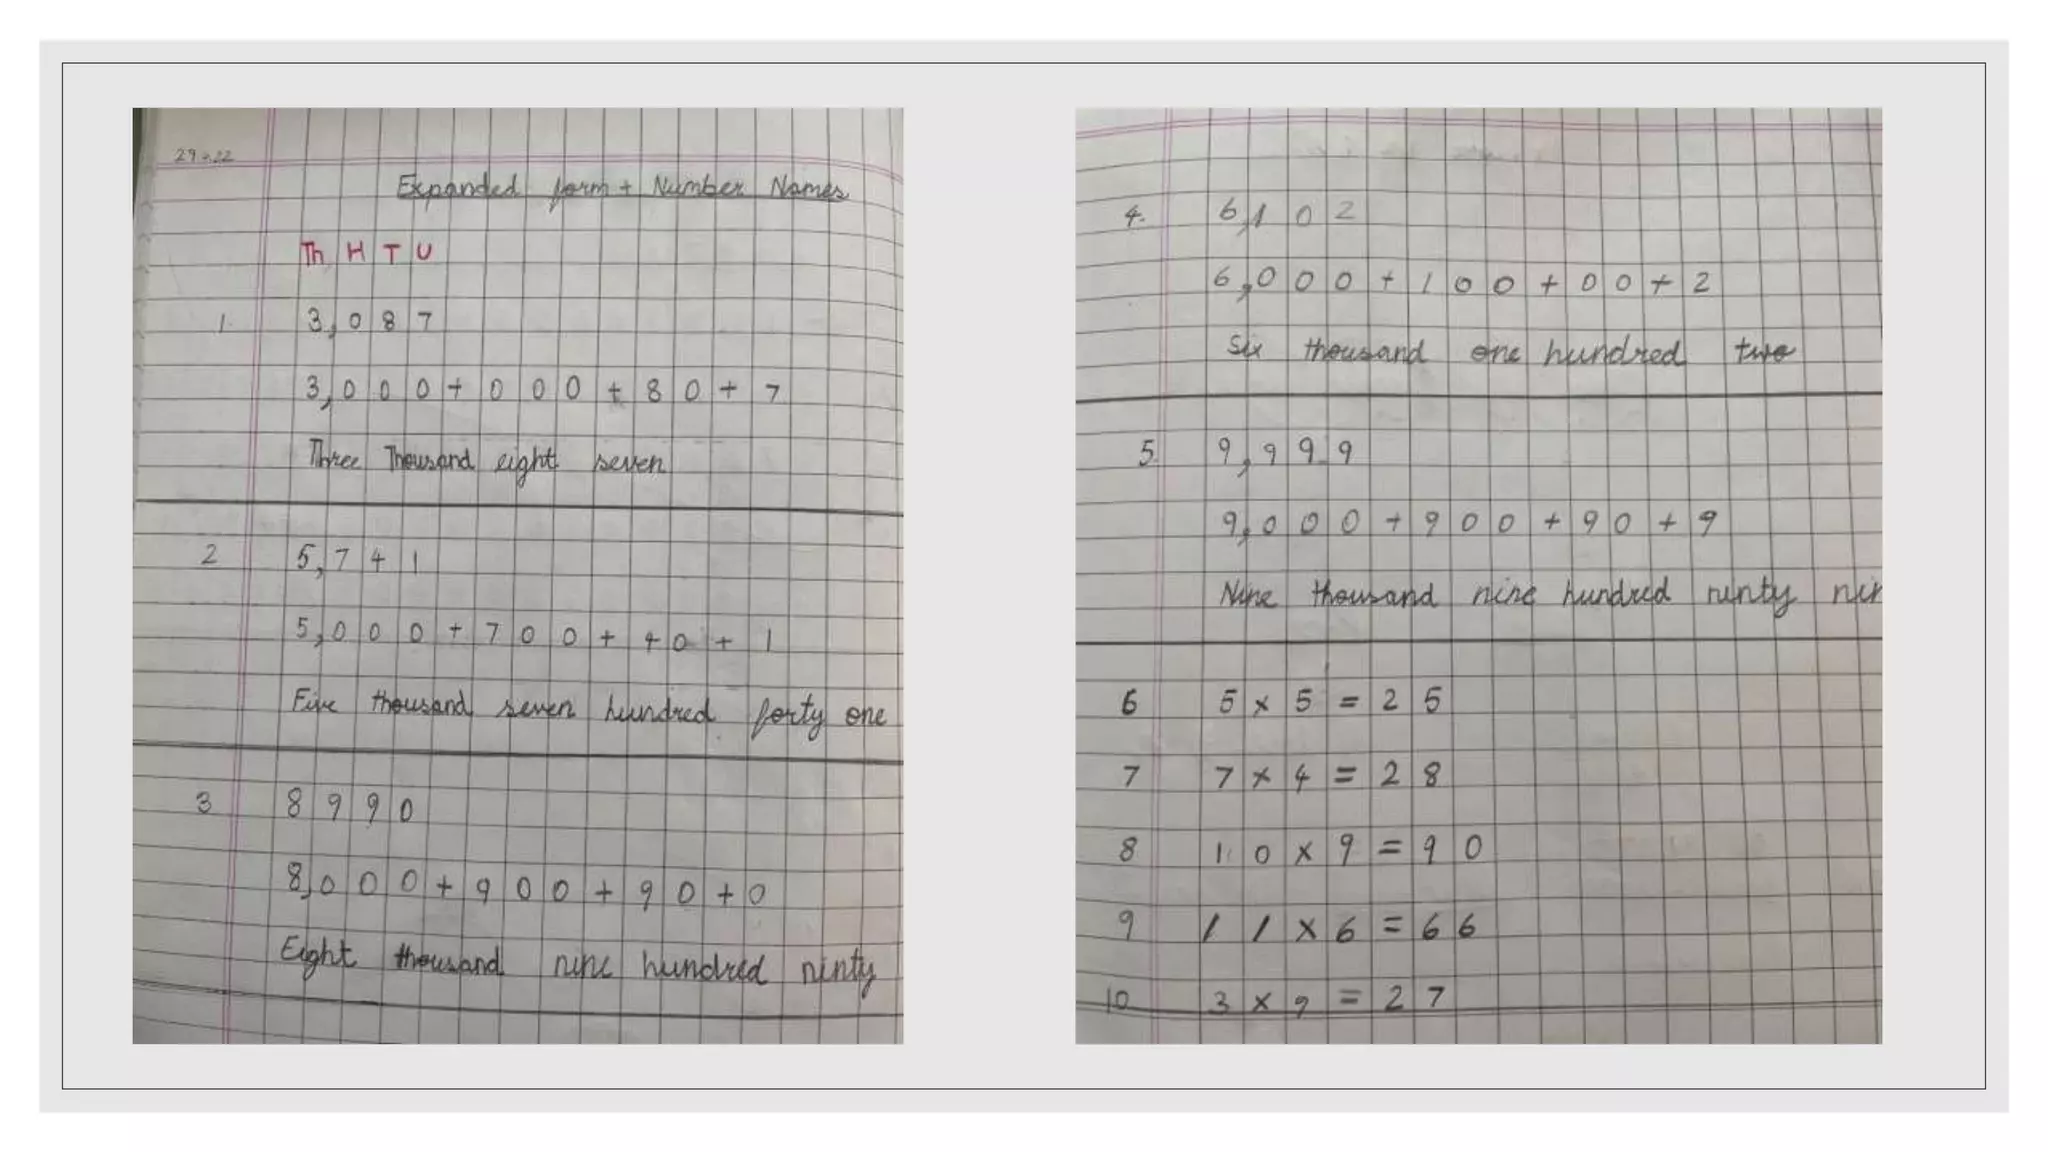 29.22
Expanded form + Number Names
Th H T U
1. 3,087
3,000+000+80+7
Three Thousand eight seven
2 5,741
5,000+700+40+1
Five thousand seven hundred forty one
3 8990
8,000+900+90+0
Eight thousand nine hundred ninty
4. 6,102
6,000+100+00+2
Six thousand one hundred two
5. 9,999
9,000+900+90+9
Nine thousand nine hundred ninty nin
6 5×5=25
7 7×4=28
8 10×9=90
9 11×6=66
10 3×9=27